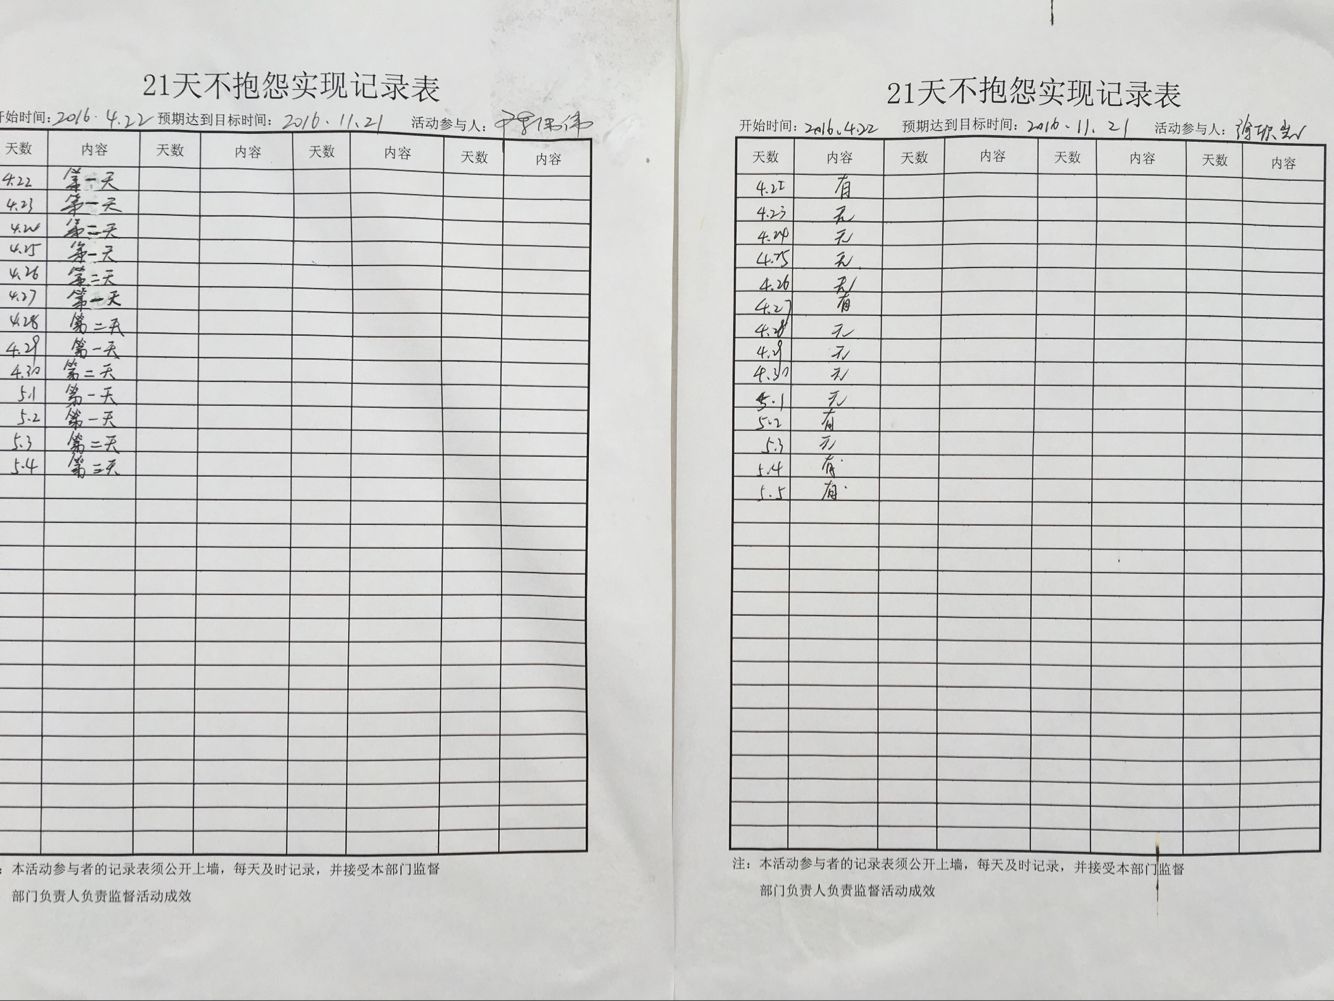 21天不抱怨实现记录表
开始时间：2016.4.22 预期达到目标时间：2016.11.21 活动参与人：
天数 内容 天数 内容 天数 内容 天数 内容
4.22 第一天
4.23 第一天
4.24 第二天
4.25 第一天
4.26 第二天
4.27 第一天
4.28 第二天
4.29 第一天
4.30 第二天
5.1 第一天
5.2 第一天
5.3 第二天
5.4 第三天
：本活动参与者的记录表须公开上墙，每天及时记录，并接受本部门监督
部门负责人负责监督活动成效
21天不抱怨实现记录表
开始时间：2016.4.22 预期达到目标时间：2016.11.21 活动参与人：
天数 内容 天数 内容 天数 内容 天数 内容
4.22 有
4.23 无
4.24 无
4.25 无
4.26 无
4.27 有
4.28 无
4.29 无
4.30 无
5.1 无
5.2 有
5.3 无
5.4 有
5.5 有
注：本活动参与者的记录表须公开上墙，每天及时记录，并接受本部门监督
部门负责人负责监督活动成效